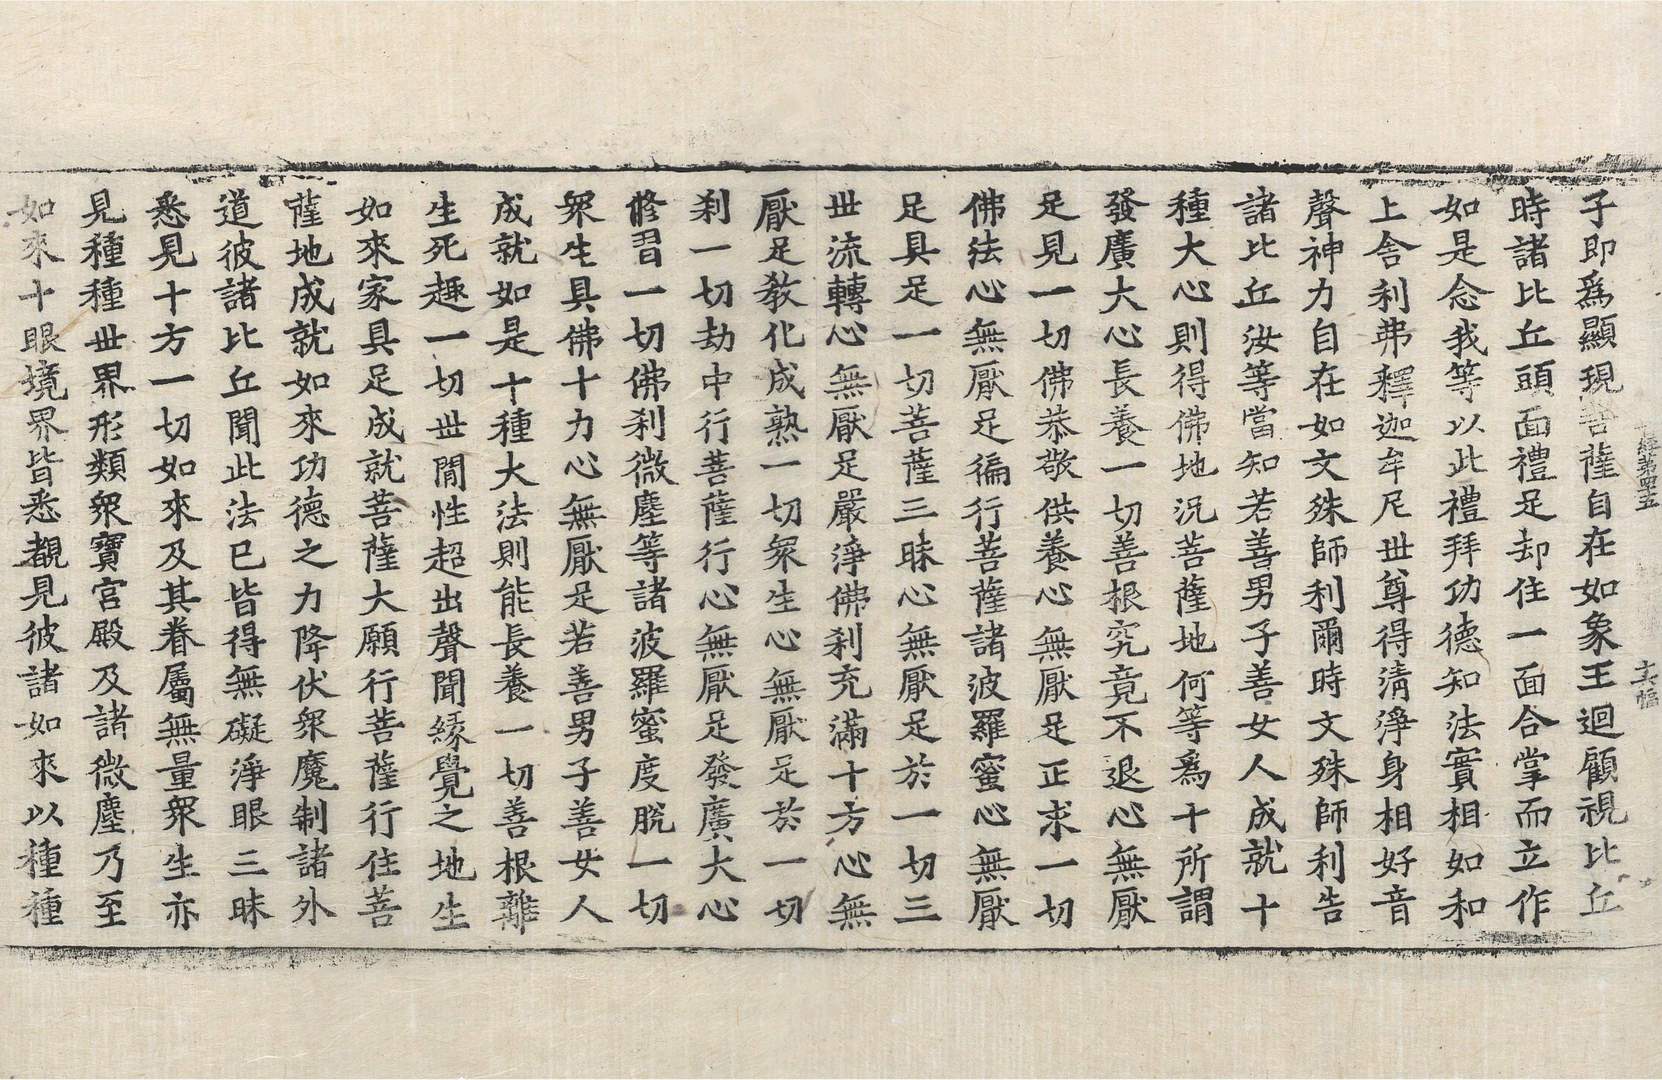 子即爲顯現菩薩自在如象王迴顧視比丘
時諸比丘頭面禮足却住一面合掌而立作
如是念我等以此禮拜功德知法實相如和
上舍利弗釋迦牟尼世尊得清淨身相好音
聲神力自在如文殊師利爾時文殊師利告
諸比丘汝等當知若善男子善女人成就十
種大心則得佛地況菩薩地何等爲十所謂
發廣大心長養一切善根究竟不退心無厭
足見一切佛恭敬供養心無厭足正求一切
佛法心無厭足徧行菩薩諸波羅蜜心無厭
足具足一切菩薩三昧心無厭足於一切三
世流轉心無厭足嚴淨佛刹充滿十方心無
厭足教化成熟一切衆生心無厭足於一切
刹一切劫中行菩薩行心無厭足發廣大心
修習一切佛刹微塵等諸波羅蜜度脫一切
衆生具佛十力心無厭足若善男子善女人
成就如是十種大法則能長養一切善根離
生死趣一切世閒性超出聲聞緣覺之地生
如來家具足成就菩薩大願行菩薩行住菩
薩地成就如來功德之力降伏衆魔制諸外
道彼諸比丘聞此法已皆得無礙淨眼三昧
悉見十方一切如來及其眷屬無量衆生亦
見種種世界形類衆寶宮殿及諸微塵乃至
如來十眼境界皆悉覩見彼諸如來以種種